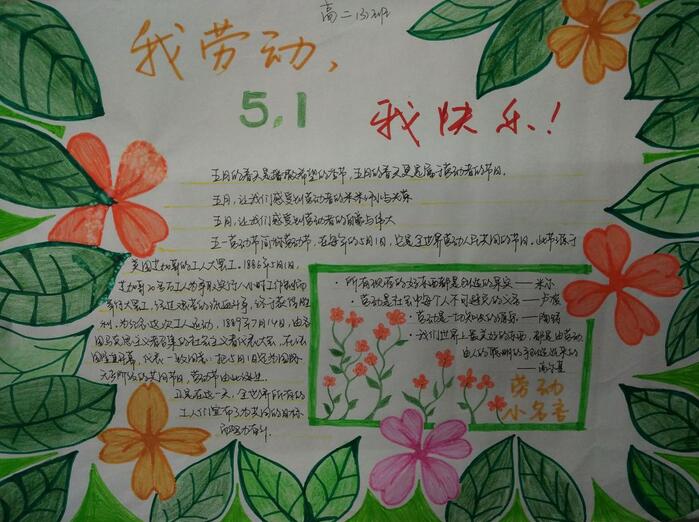 高二(3)班
我劳动、
5.1
我快乐！
五月的春天是播撒希望的季节，五月的春天更是属于劳动者的节日。
五月，让我们感受到劳动者的
五月，让我们感受到劳动者的 与伟大
五一劳动节简称劳动节，在每年的5月1日，它是全世界劳动人民共同的节日。此节源于
美国芝加哥的工人大罢工。1886年5月1日，
芝加哥20多万工人为争取实行八小时工作制而
举行大罢工，经过艰苦的流血斗争，终于获得胜
利，为纪念这次工人运动，1889年7月14日，由各
国马克思主义者召集的社会主义者代表大会，在法
国 开幕，代表一致同意：把5月1日定为国际
无产阶级的共同节日，劳动节由此诞生。
在这一天，全世界所有的
工人们宣布了为共同的目标
而努力奋斗。
· 所有现存的好东西都是创造的果实——米尔
· 劳动是社会中每个人不可避免的义务——卢梭
· 劳动是一切知识的源泉——陶铸
· 我们世界上最美好的东西，都是由劳动、
由人的聪明的手创造出来的
——高尔基
劳动
小名言